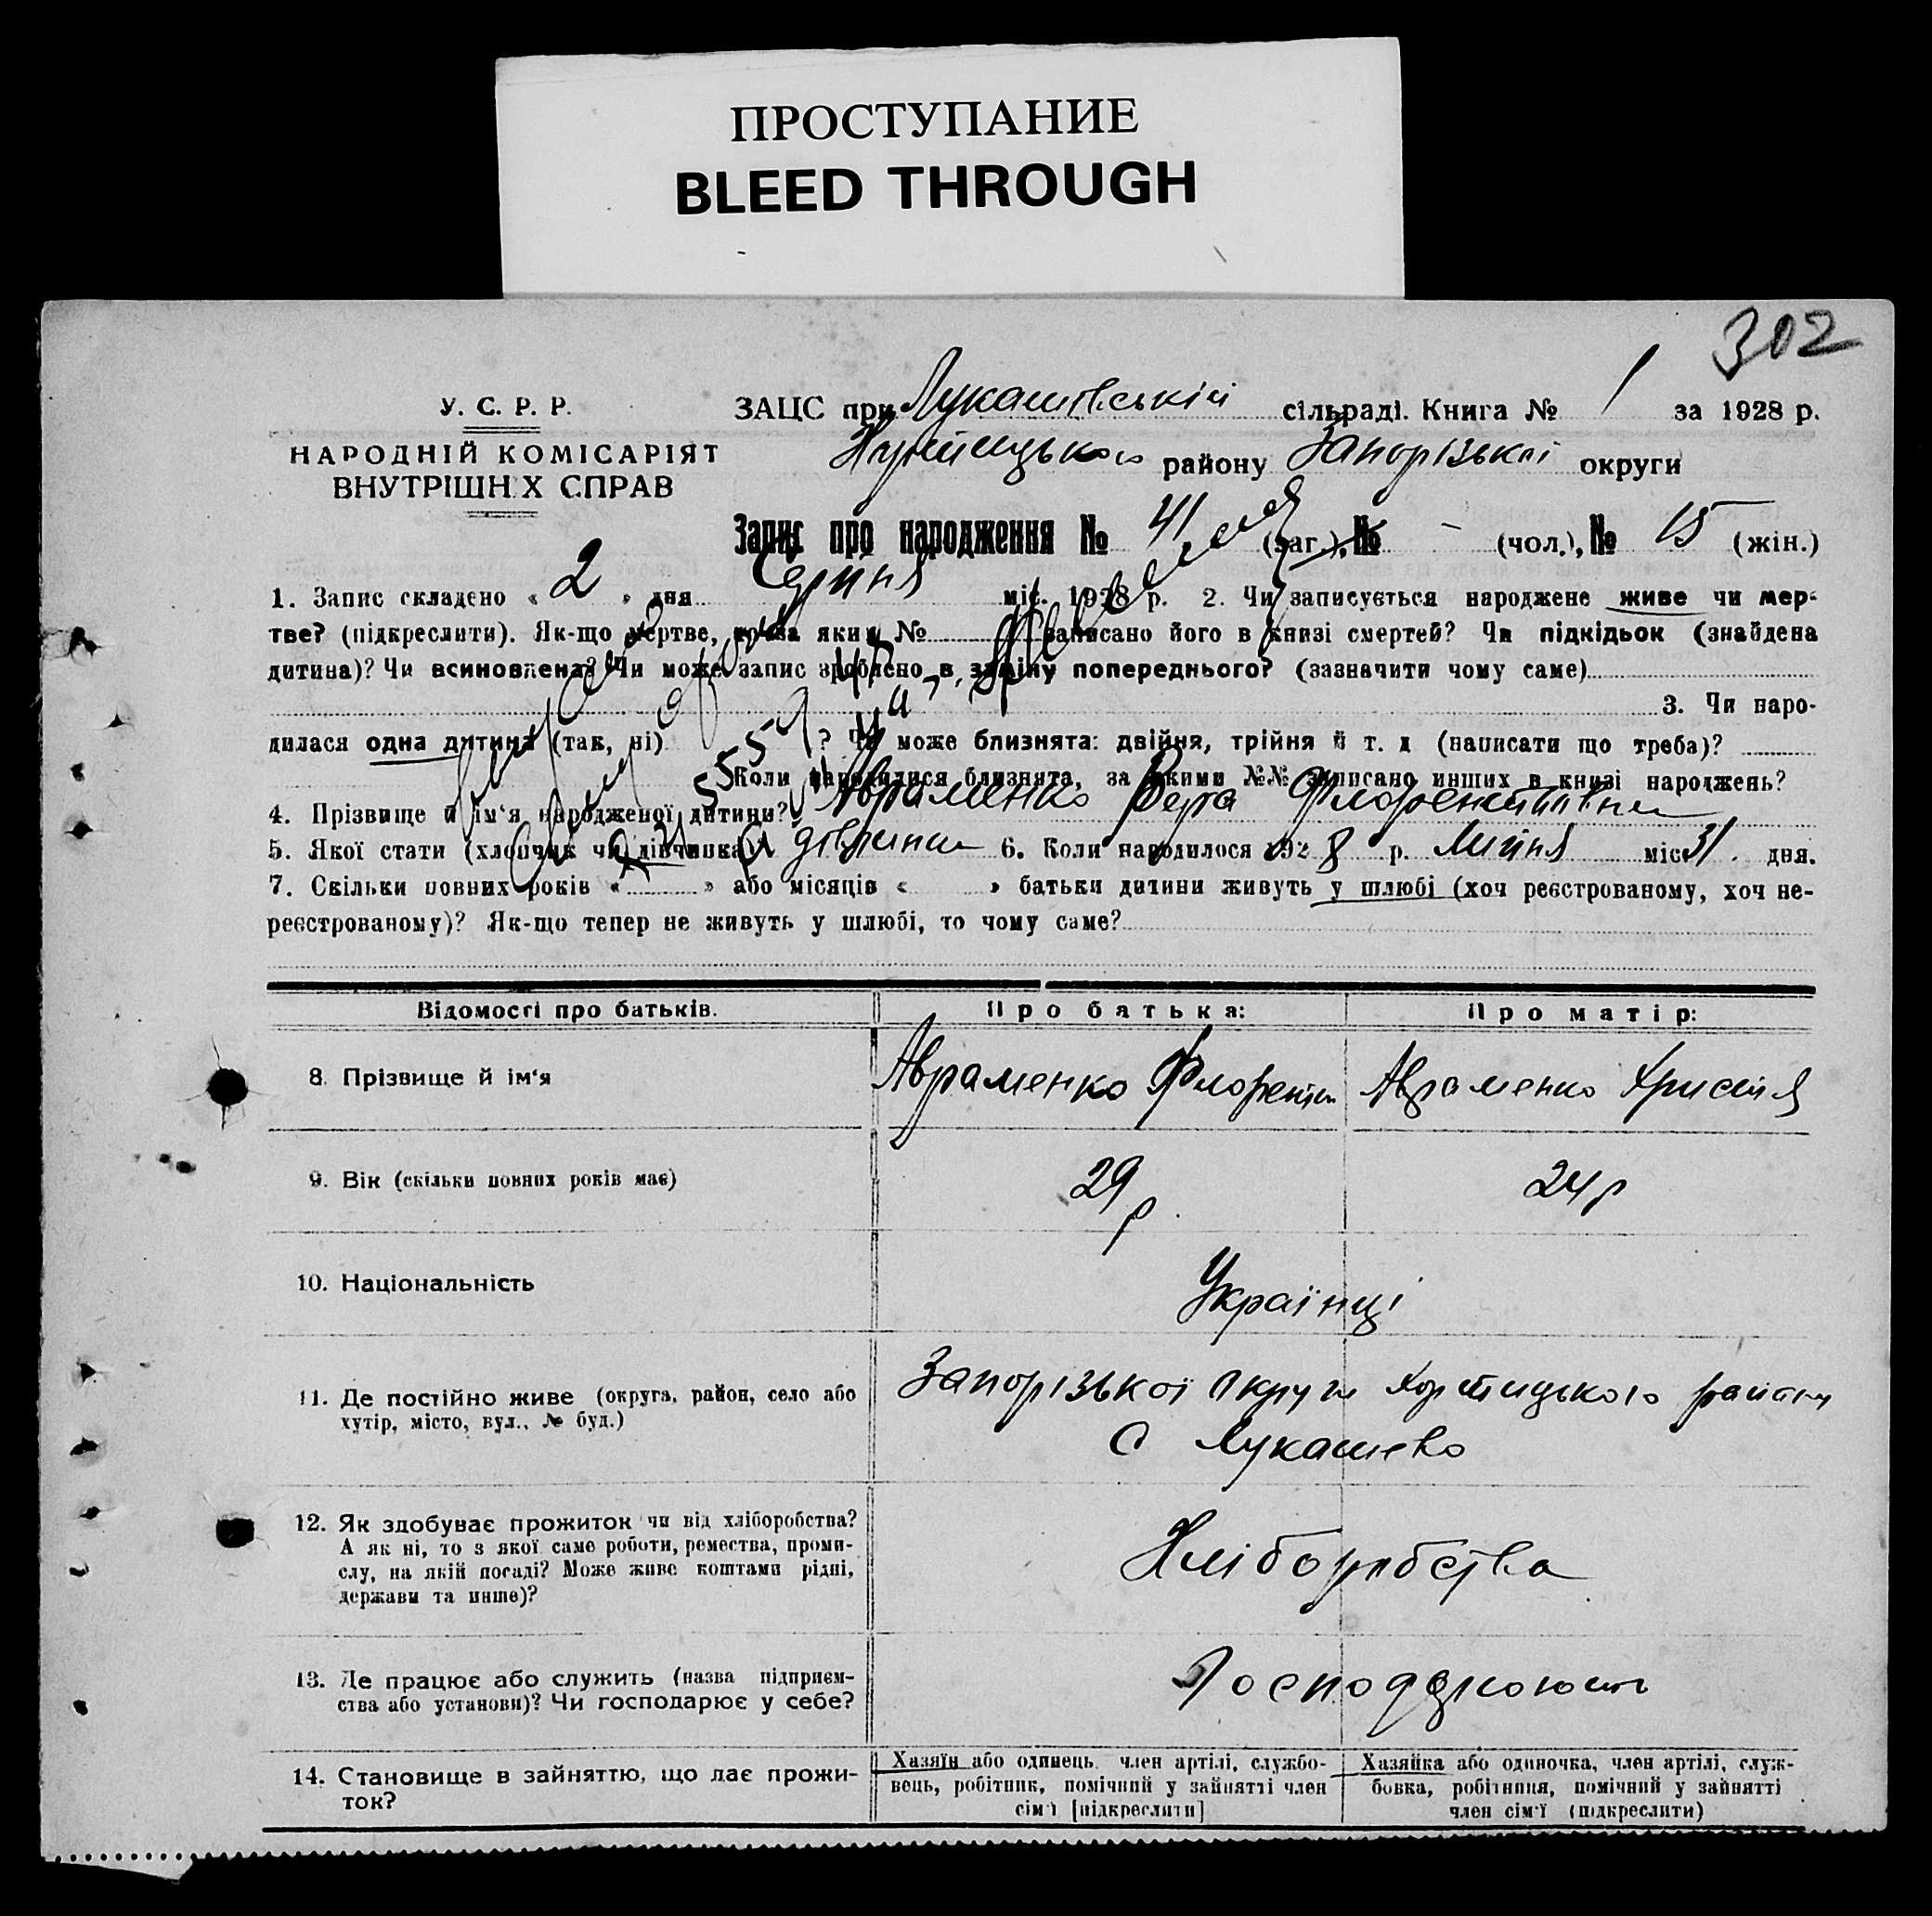 ПРОСТУПАНИЕ
BLEED THROUGH
302
У. С. Р. Р.
НАРОДНІЙ КОМІСАРІЯТ
ВНУТРІШНІХ СПРАВ
ЗАЦС при Лукашівській сільраді. Книга № 1 за 1928 р.
Хортицького району Запорізької округи
Запис про народження № 41 (заг.), № - (чол.), № 15 (жін.)
1. Запис складено « 2 » дня Серпня міс. 1928 р. 2. Чи записується народжене живе чи мер-
тве? (підкреслити). Як-що мертве, то за яким № записано його в книзі смертей? Чи підкідьок (знайдена
дитина)? Чи всиновлена? Чи може запис зроблено в заміну попереднього? (зазначити чому саме)
3. Чи наро-
дилася одна дитина (так, ні) ? Чи може близнята: двійня, трійня й т. д (написати що треба)?
Коли народилися близнята, за якими №№ записано инших в книзі народжень?
4. Прізвище й ім‘я народженої дитини? Авраменко Вера Флорентівна
5. Якої статі (хлопчик чи дівчинка) дівчинка 6. Коли народилося 1928 р. Липня міс 31 дня.
7. Скільки повних років « » або місяців « » батьки дитини живуть у шлюбі (хоч реєстрованому, хоч не-
реєстрованому)? Як-що тепер не живуть у шлюбі, то чому саме?
Відомості про батьків.
Про батька:
Про матір:
8. Прізвище й ім‘я
Авраменко Флорентій
Авраменко Христия
9. Вік (скільки повних років має)
29 р.
24 р
10. Національність
Українці
11. Де постійно живе (округа, район, село або
хутір, місто, вул., № буд.)
Запорізької округи Хортицького району
С Лукашево
12. Як здобуває прожиток чи від хліборобства?
А як ні, то з якої саме роботи, ремества, проми-
слу, на якій посаді? Може живе коштами рідні,
держави та инше)?
Хліборобства
13. Де працює або служить (назва підприєм-
ства або установи)? Чи господарює у себе?
Господарюють
14. Становище в зайняттю, що дає прожи-
ток?
Хазяїн або одинець, член артілі, службо-
вець, робітник, помічний у зайнятті член
сім‘ї [підкреслити]
Хазяйка або одиночка, член артілі, служ-
бовка, робітниця, помічний у зайнятті
член сім‘ї (підкреслити)